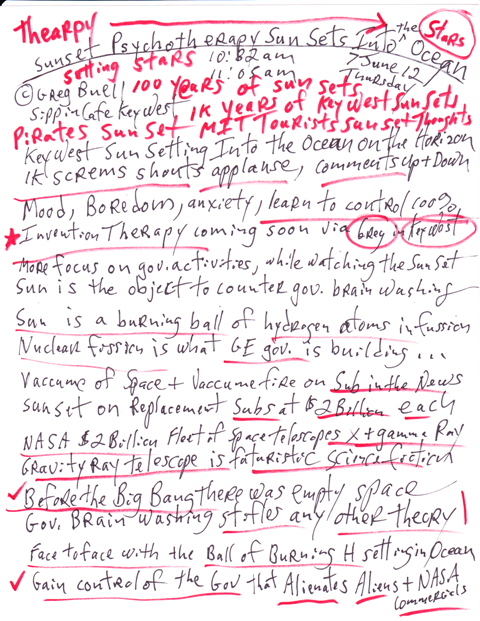 Thearpy
Stars
Sunset Psychotherapy Sun Sets Into the Ocean
Setting Stars 10:82 am 7 June 12
11:05 am Thursday
© Greg Buell 100 years of sun sets
Sippin Cafe Key West 1K years of Key West Sunsets
Pirates Sunset MIT Tourists Sunset Thoughts
Key West Sun Setting Into the Ocean on the Horizon
1K screms shouts applause, comments up + Down
Mood, Boredom, anxiety, learn to control 100%,
★ Invention Therapy coming soon via Greg in Key West
More focus on gov. activities, while watching the Sunset
Sun is the object to counter gov. brain washing
Sun is a burning ball of hydrogen atoms in fussion
Nuclear fission is what GE gov. is building...
Vaccume of Space + Vaccume fire on Sub in the News
sunset on Replacement Subs at $2 Billion each
NASA $2 Billion Fleet of Space telescopes X + gamma Ray
Gravity Ray telescope is futuristic science fiction
✓ Before the Big Bang there was empty space
Gov. Brain washing stifles any other theory
Face to face with the Ball of Burning H setting in Ocean
✓ Gain control of the Gov that Alienates Aliens + NASA
Commercials